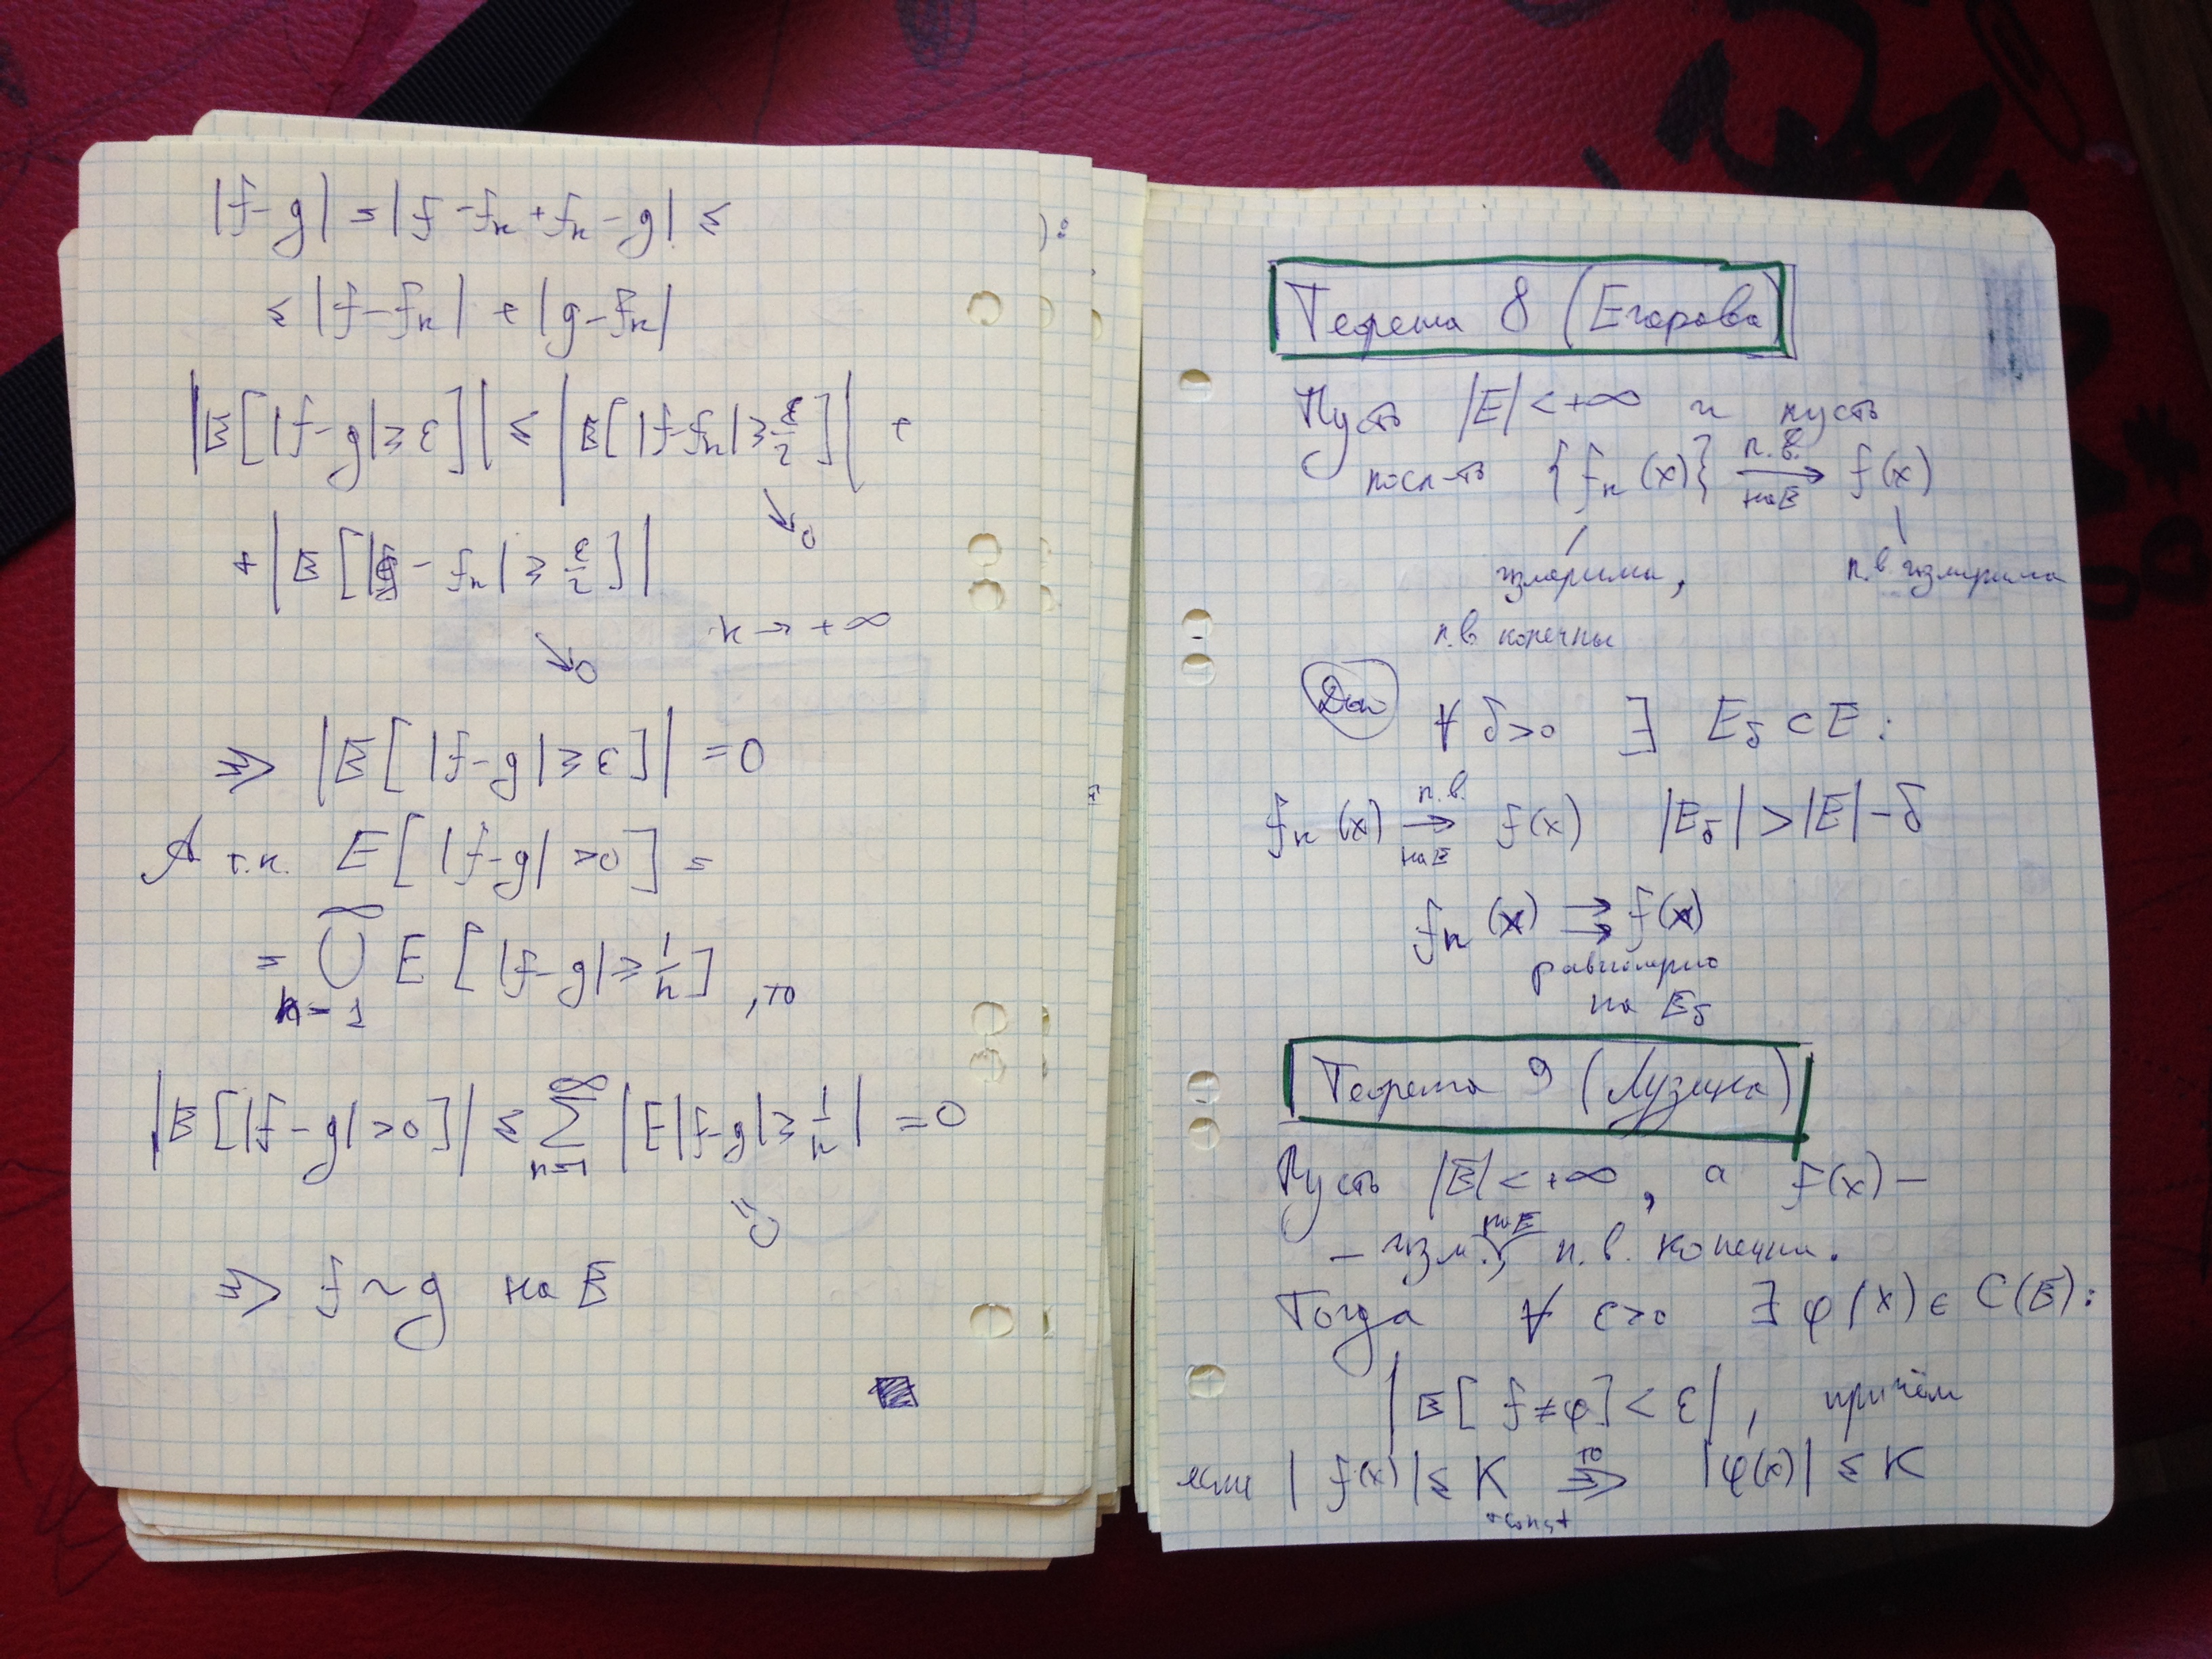 |f-g| = |f-fₙ+fₙ-g| ≤
≤ |f-fₙ| + |g-fₙ|
|E[|f-g|≥ε]| ≤ |E[|f-fₙ|≥ε/2]| +
↘0
+ |E[|g-fₙ|≥ε/2]|
n→+∞
↘0
⇒ |E[|f-g|≥ε]| = 0
А т.к. E[|f-g|>0] =
= ∞⋃n=1 E[|f-g|≥1/n], то
|E[|f-g|>0]| ≤ ∞∑n=1 |E|f-g|≥1/n| = 0
⇒ f~g на E
):
Теорема 8 (Егорова)
Пусть |E|<+∞ и пусть
посл-ть {fₙ(x)} п.в.→на E f(x)
измеримы, п.в. измерима
п.в. конечны
∀ δ>0 ∃ E_δ ⊂ E:
fₙ(x) п.в.→на E f(x) |E_δ|>|E|-δ
fₙ(x) ⇉ f(x)
равномерно
на E_δ
Теорема 9 (Лузина)
Пусть |E|<+∞, а f(x) –
– изм. на E, п.в. конечна.
Тогда ∀ ε>0 ∃ φ(x)∈C(E):
|E[f≠φ]<ε|, причём
если |f(x)|≤K то⇒ |φ(x)|≤K
const